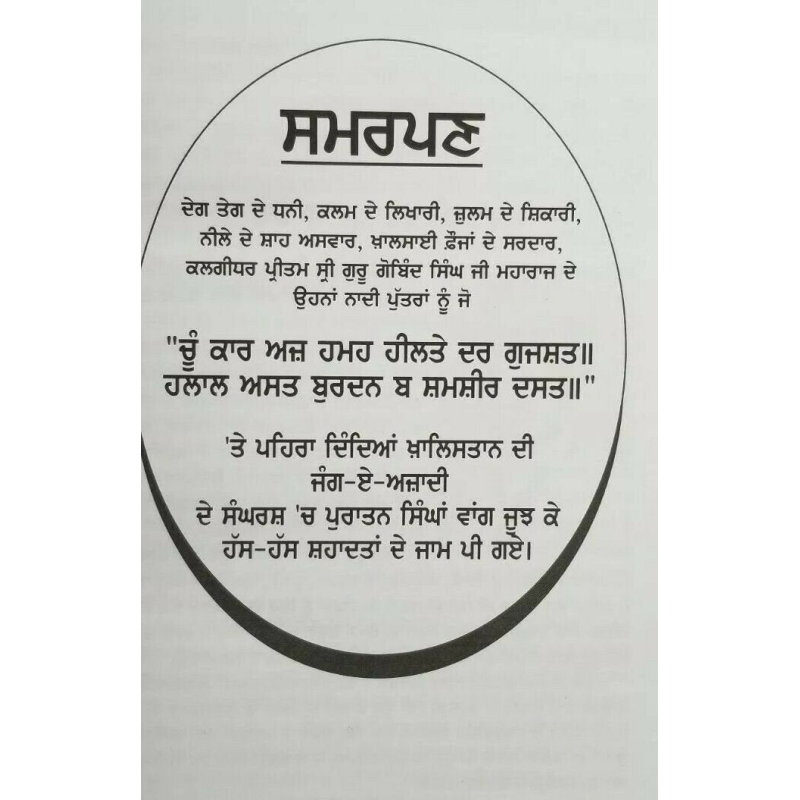 ਸਮਰਪਣ
ਦੇਗ ਤੇਗ ਦੇ ਧਨੀ, ਕਲਮ ਦੇ ਲਿਖਾਰੀ, ਜ਼ੁਲਮ ਦੇ ਸ਼ਿਕਾਰੀ,
ਨੀਲੇ ਦੇ ਸ਼ਾਹ ਅਸਵਾਰ, ਖ਼ਾਲਸਾਈ ਫ਼ੌਜਾਂ ਦੇ ਸਰਦਾਰ,
ਕਲਗੀਧਰ ਪ੍ਰੀਤਮ ਸ੍ਰੀ ਗੁਰੂ ਗੋਬਿੰਦ ਸਿੰਘ ਜੀ ਮਹਾਰਾਜ ਦੇ
ਉਹਨਾਂ ਨਾਦੀ ਪੁੱਤਰਾਂ ਨੂੰ ਜੋ
"ਚੂੰ ਕਾਰ ਅਜ਼ ਹਮਹ ਹੀਲਤੇ ਦਰ ਗੁਜਸ਼ਤ॥
ਹਲਾਲ ਅਸਤ ਬੁਰਦਨ ਬ ਸ਼ਮਸ਼ੀਰ ਦਸਤ॥"
'ਤੇ ਪਹਿਰਾ ਦਿੰਦਿਆਂ ਖ਼ਾਲਿਸਤਾਨ ਦੀ
ਜੰਗ-ਏ-ਅਜ਼ਾਦੀ
ਦੇ ਸੰਘਰਸ਼ 'ਚ ਪੁਰਾਤਨ ਸਿੰਘਾਂ ਵਾਂਗ ਜੂਝ ਕੇ
ਹੱਸ-ਹੱਸ ਸ਼ਹਾਦਤਾਂ ਦੇ ਜਾਮ ਪੀ ਗਏ।